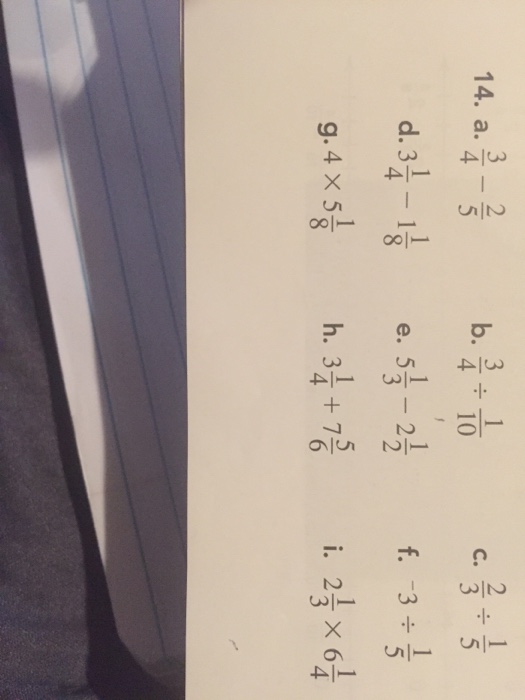 14. a. 3/4 − 2/5 b. 3/4 ÷ 1/10 c. 2/3 ÷ 1/5
d. 3 1/4 − 1 1/8 e. 5 1/3 − 2 1/2 f. −3 ÷ 1/5
g. 4 × 5 1/8 h. 3 1/4 + 7 5/6 i. 2 1/3 × 6 1/4